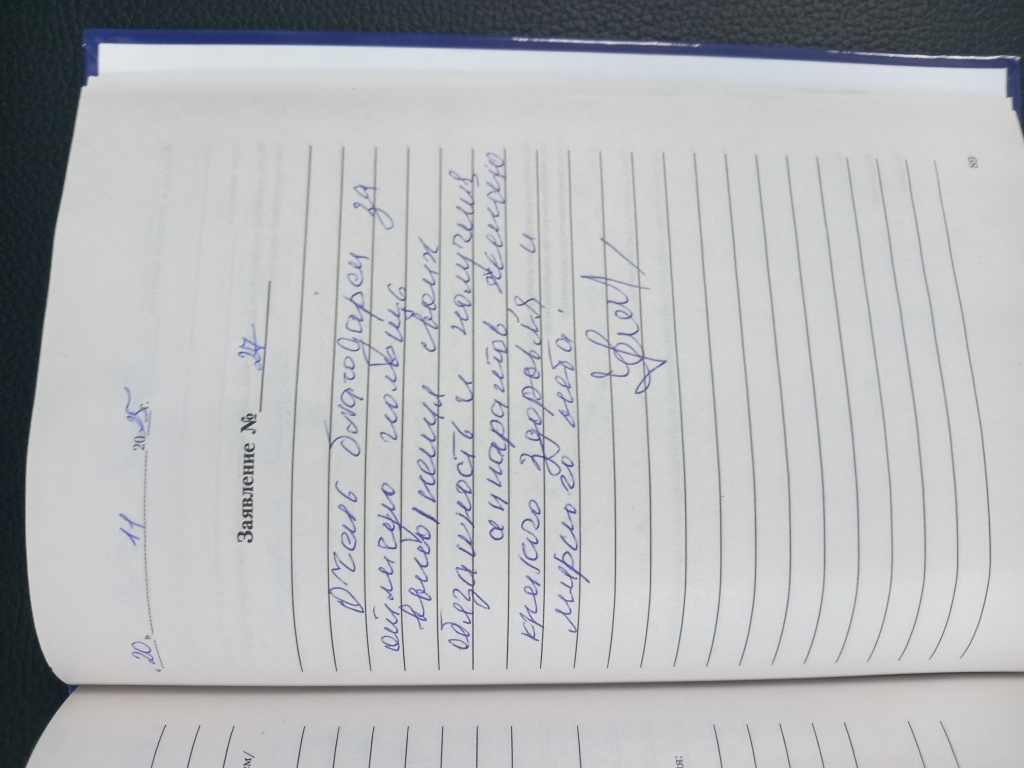 „20" 11 2025г.
Заявление № 27
Очень благодарен за
отличную
выполнении своих
обязанность и получил
аппаратов желаю
крепкого здоровия и
мирного неба.
89